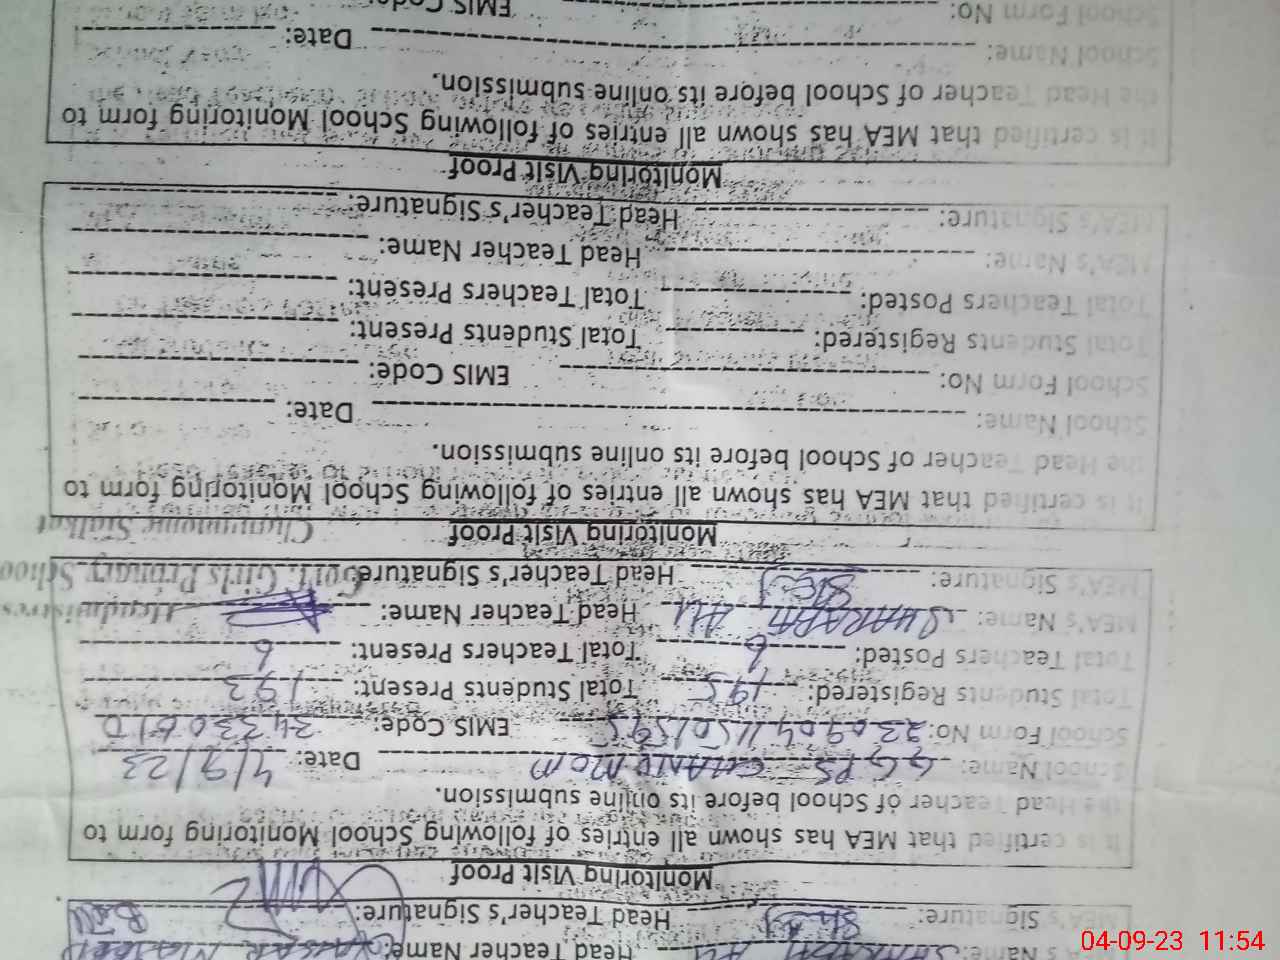 MEA's Name: SHARAFAT ALI Head Teacher Name:
MEA's Signature: Head Teacher's Signature:
Monitoring Visit Proof
It is certified that MEA has shown all entries of following of following School Monitoring form to
the Head Teacher of School before its online submission.
School Name: GGPS CHANU MOM Date: 4/9/23
School Form No: EMIS Code: 34330610
Total Students Registered: 195 Total Students Present: 193
Total Teachers Posted: 6 Total Teachers Present: 6
MEA's Name: SHARAFAT ALI Head Teacher Name:
MEA's Signature: Head Teacher's Signature:
Headmistress
Govt. Girls Primary School
Chanumome Sialkot
Monitoring Visit Proof
It is certified that MEA has shown all entries of following of following School Monitoring form to
the Head Teacher of School before its online submission.
School Name: Date:
School Form No: EMIS Code:
Total Students Registered: Total Students Present:
Total Teachers Posted: Total Teachers Present:
MEA's Name: Head Teacher Name:
MEA's Signature: Head Teacher's Signature:
Monitoring Visit Proof
It is certified that MEA has shown all entries of following of following School Monitoring form to
the Head Teacher of School before its online submission.
School Name: Date:
School Form No: EMIS Code:
04-09-23 11:54